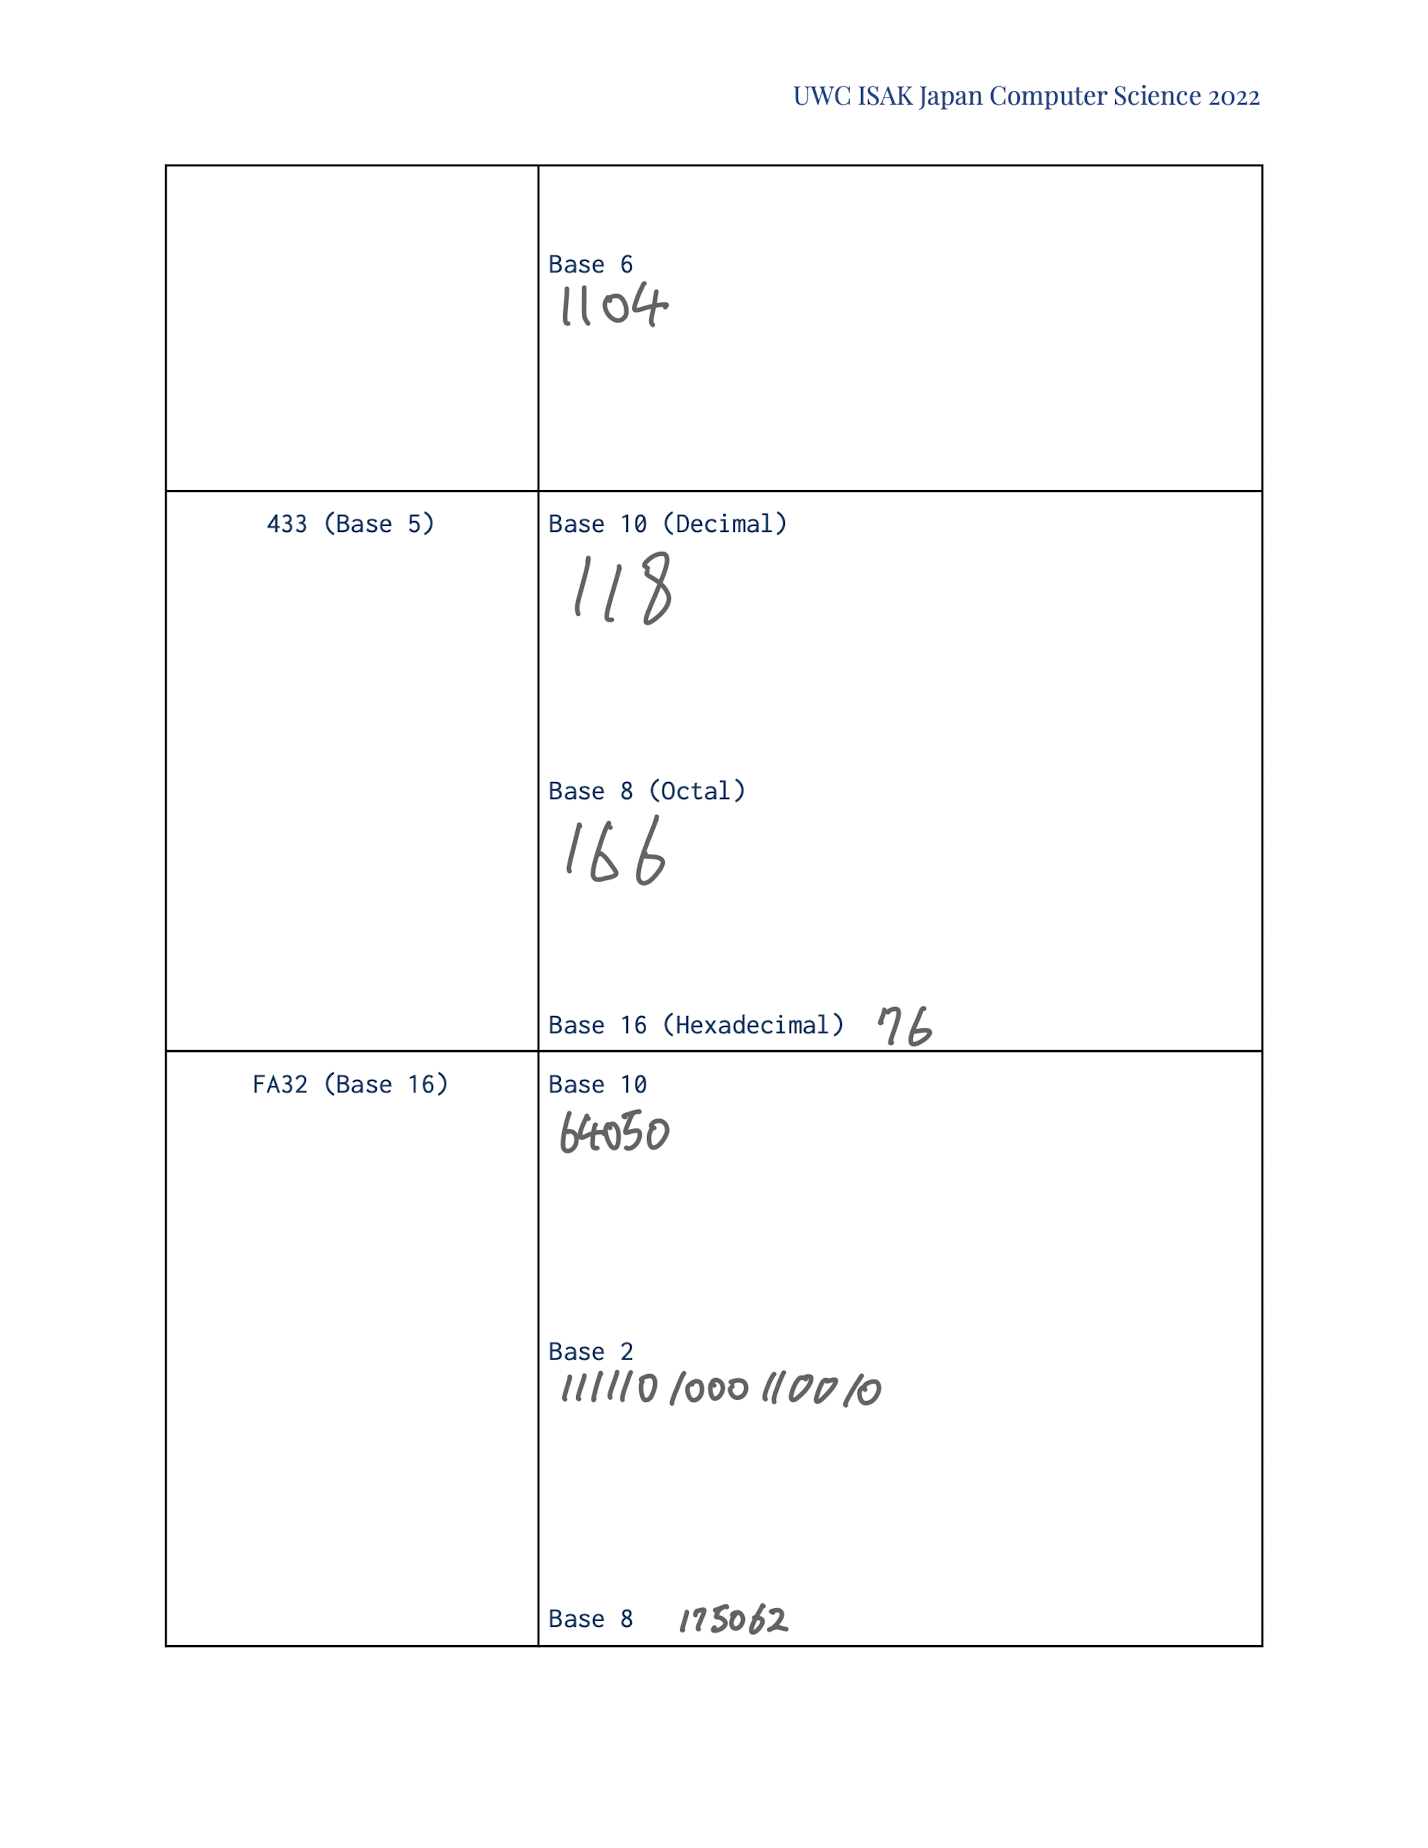 UWC ISAK Japan Computer Science 2022
Base 6
1104
433 (Base 5)
Base 10 (Decimal)
118
Base 8 (Octal)
166
Base 16 (Hexadecimal) 76
FA32 (Base 16)
Base 10
64050
Base 2
1111101000110010
Base 8 175062